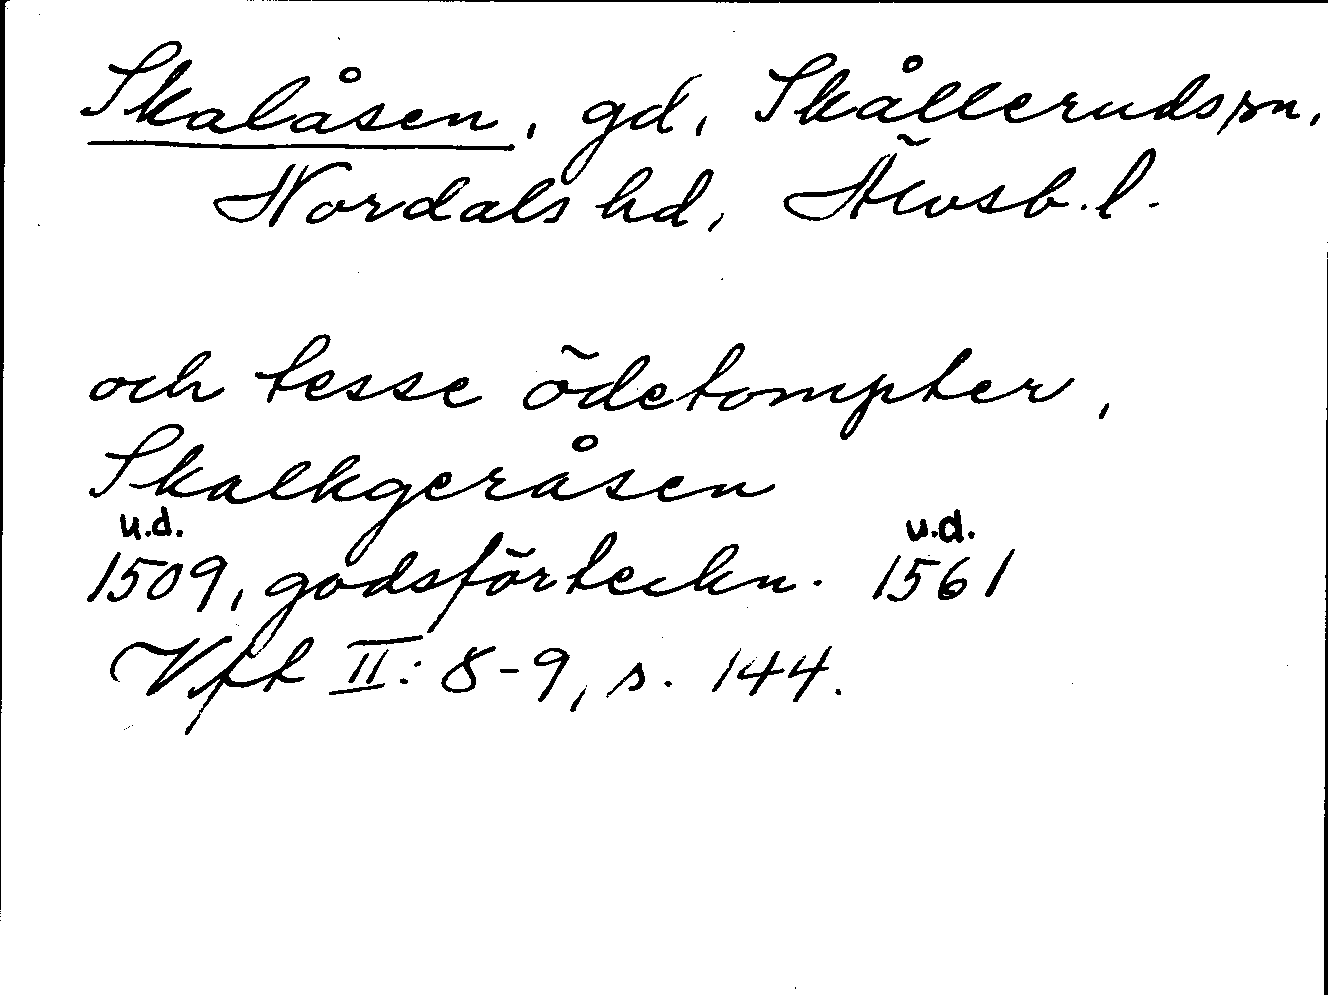 Skalåsen, gd, Skålleruds sn,
Nordals hd, Älvsb. l.
och tesse ödetompter,
Skalkgeråsen
u.d. u.d.
1509, godsförteckn. 1561
Vft II: 8-9, s. 144.